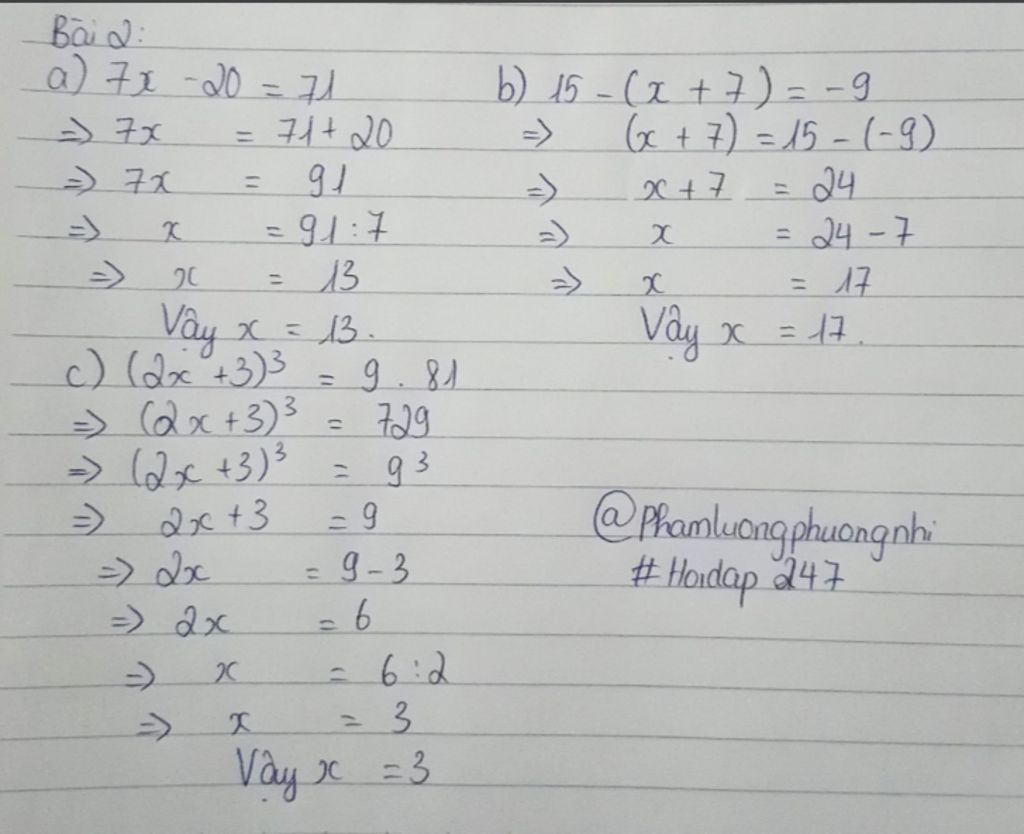 Bài 2:
a) 7x - 20 = 71
=> 7x = 71 + 20
=> 7x = 91
=> x = 91 : 7
=> x = 13
Vậy x = 13.
b) 15 - (x + 7) = -9
=> (x + 7) = 15 - (-9)
=> x + 7 = 24
=> x = 24 - 7
=> x = 17
Vậy x = 17.
c) (2x + 3)³ = 9 . 81
=> (2x + 3)³ = 729
=> (2x + 3)³ = 9³
=> 2x + 3 = 9
=> 2x = 9 - 3
=> 2x = 6
=> x = 6 : 2
=> x = 3
Vậy x = 3
@Phamluongphuongnhi
# Hoidap 247